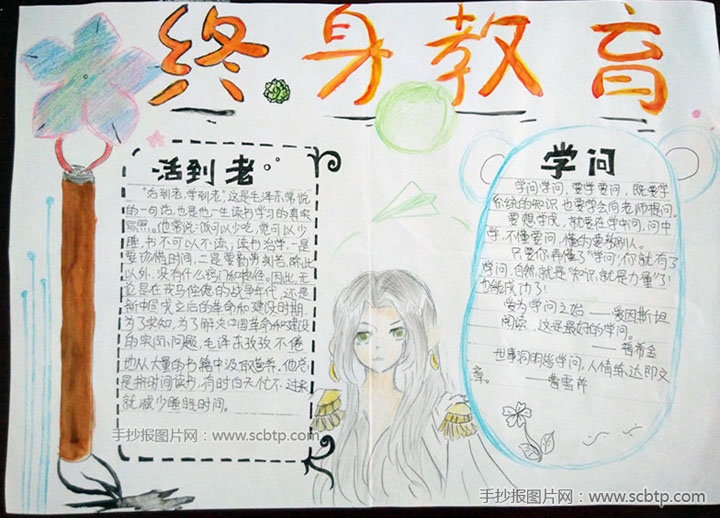 终身教育
活到老
"活到老,学到老"这是毛泽东常说
的一句话,也是他一生读书学习的真实
写照。他常说:饭可以少吃,觉可以少
睡,书不可以不读;读书治学,一是
要珍惜时间,二是要勤奋刻苦,除此
以外,没有什么窍门和捷径。因此,无
论是在戎马倥偬的战争年代,还是
新中国成立之后的革命和建设时期,
为了求知,为了解决中国革命和建设
的实际问题,毛泽东孜孜不倦
地从大量的书籍中汲取营养,他总
是挤时间读书,有时白天忙不过来
就减少睡眠时间。
手抄报图片网:www.scbtp.com
学问
学问学问,要学要问,既要学
系统的知识也要学会向老师提问。
要想学成,就要在学中问,问中
学,不懂要问,懂的要教别人。
只要你弄懂了"学问",你就有了
学问,自然,就是"知识就是力量"了!
也就成功了!
爱为学问之始 ——爱因斯坦
阅读,这是最好的学问。
——普希金
世事洞明皆学问,人情练达即文
章。 ——曹雪芹
手抄报图片网:www.scbtp.com